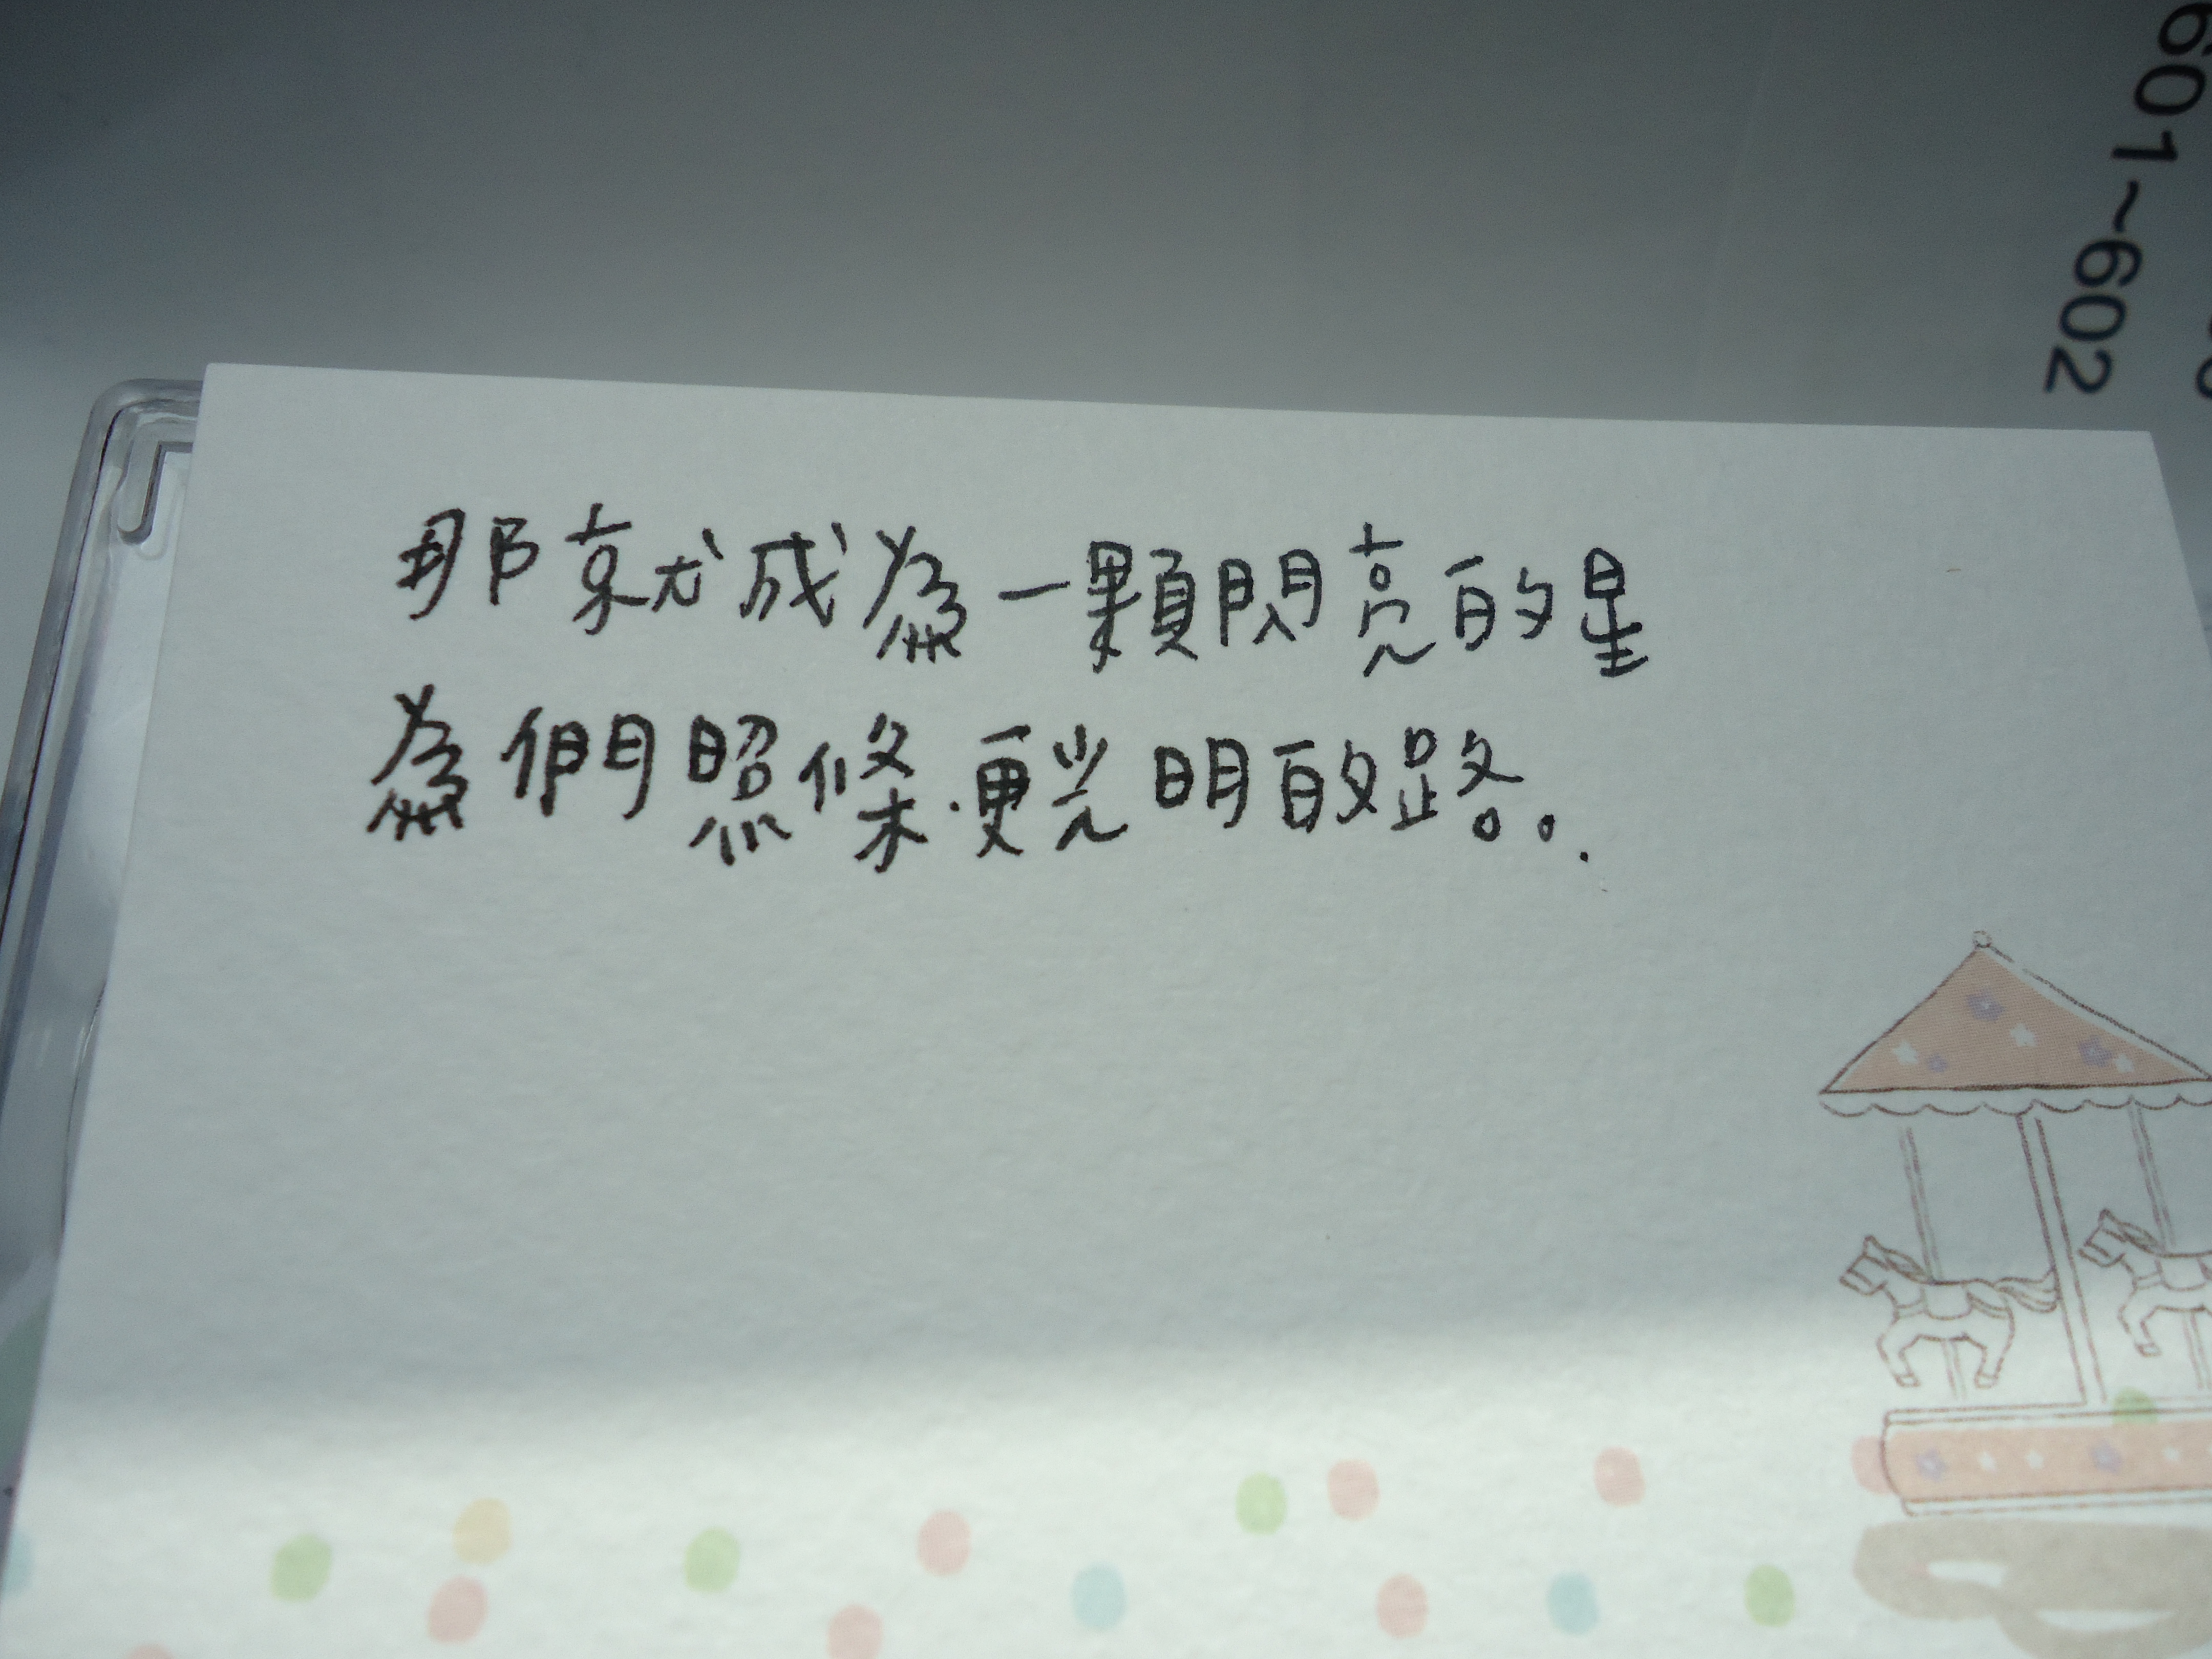 那就成為一顆閃亮的星
為們照條更光明的路。。
601~602